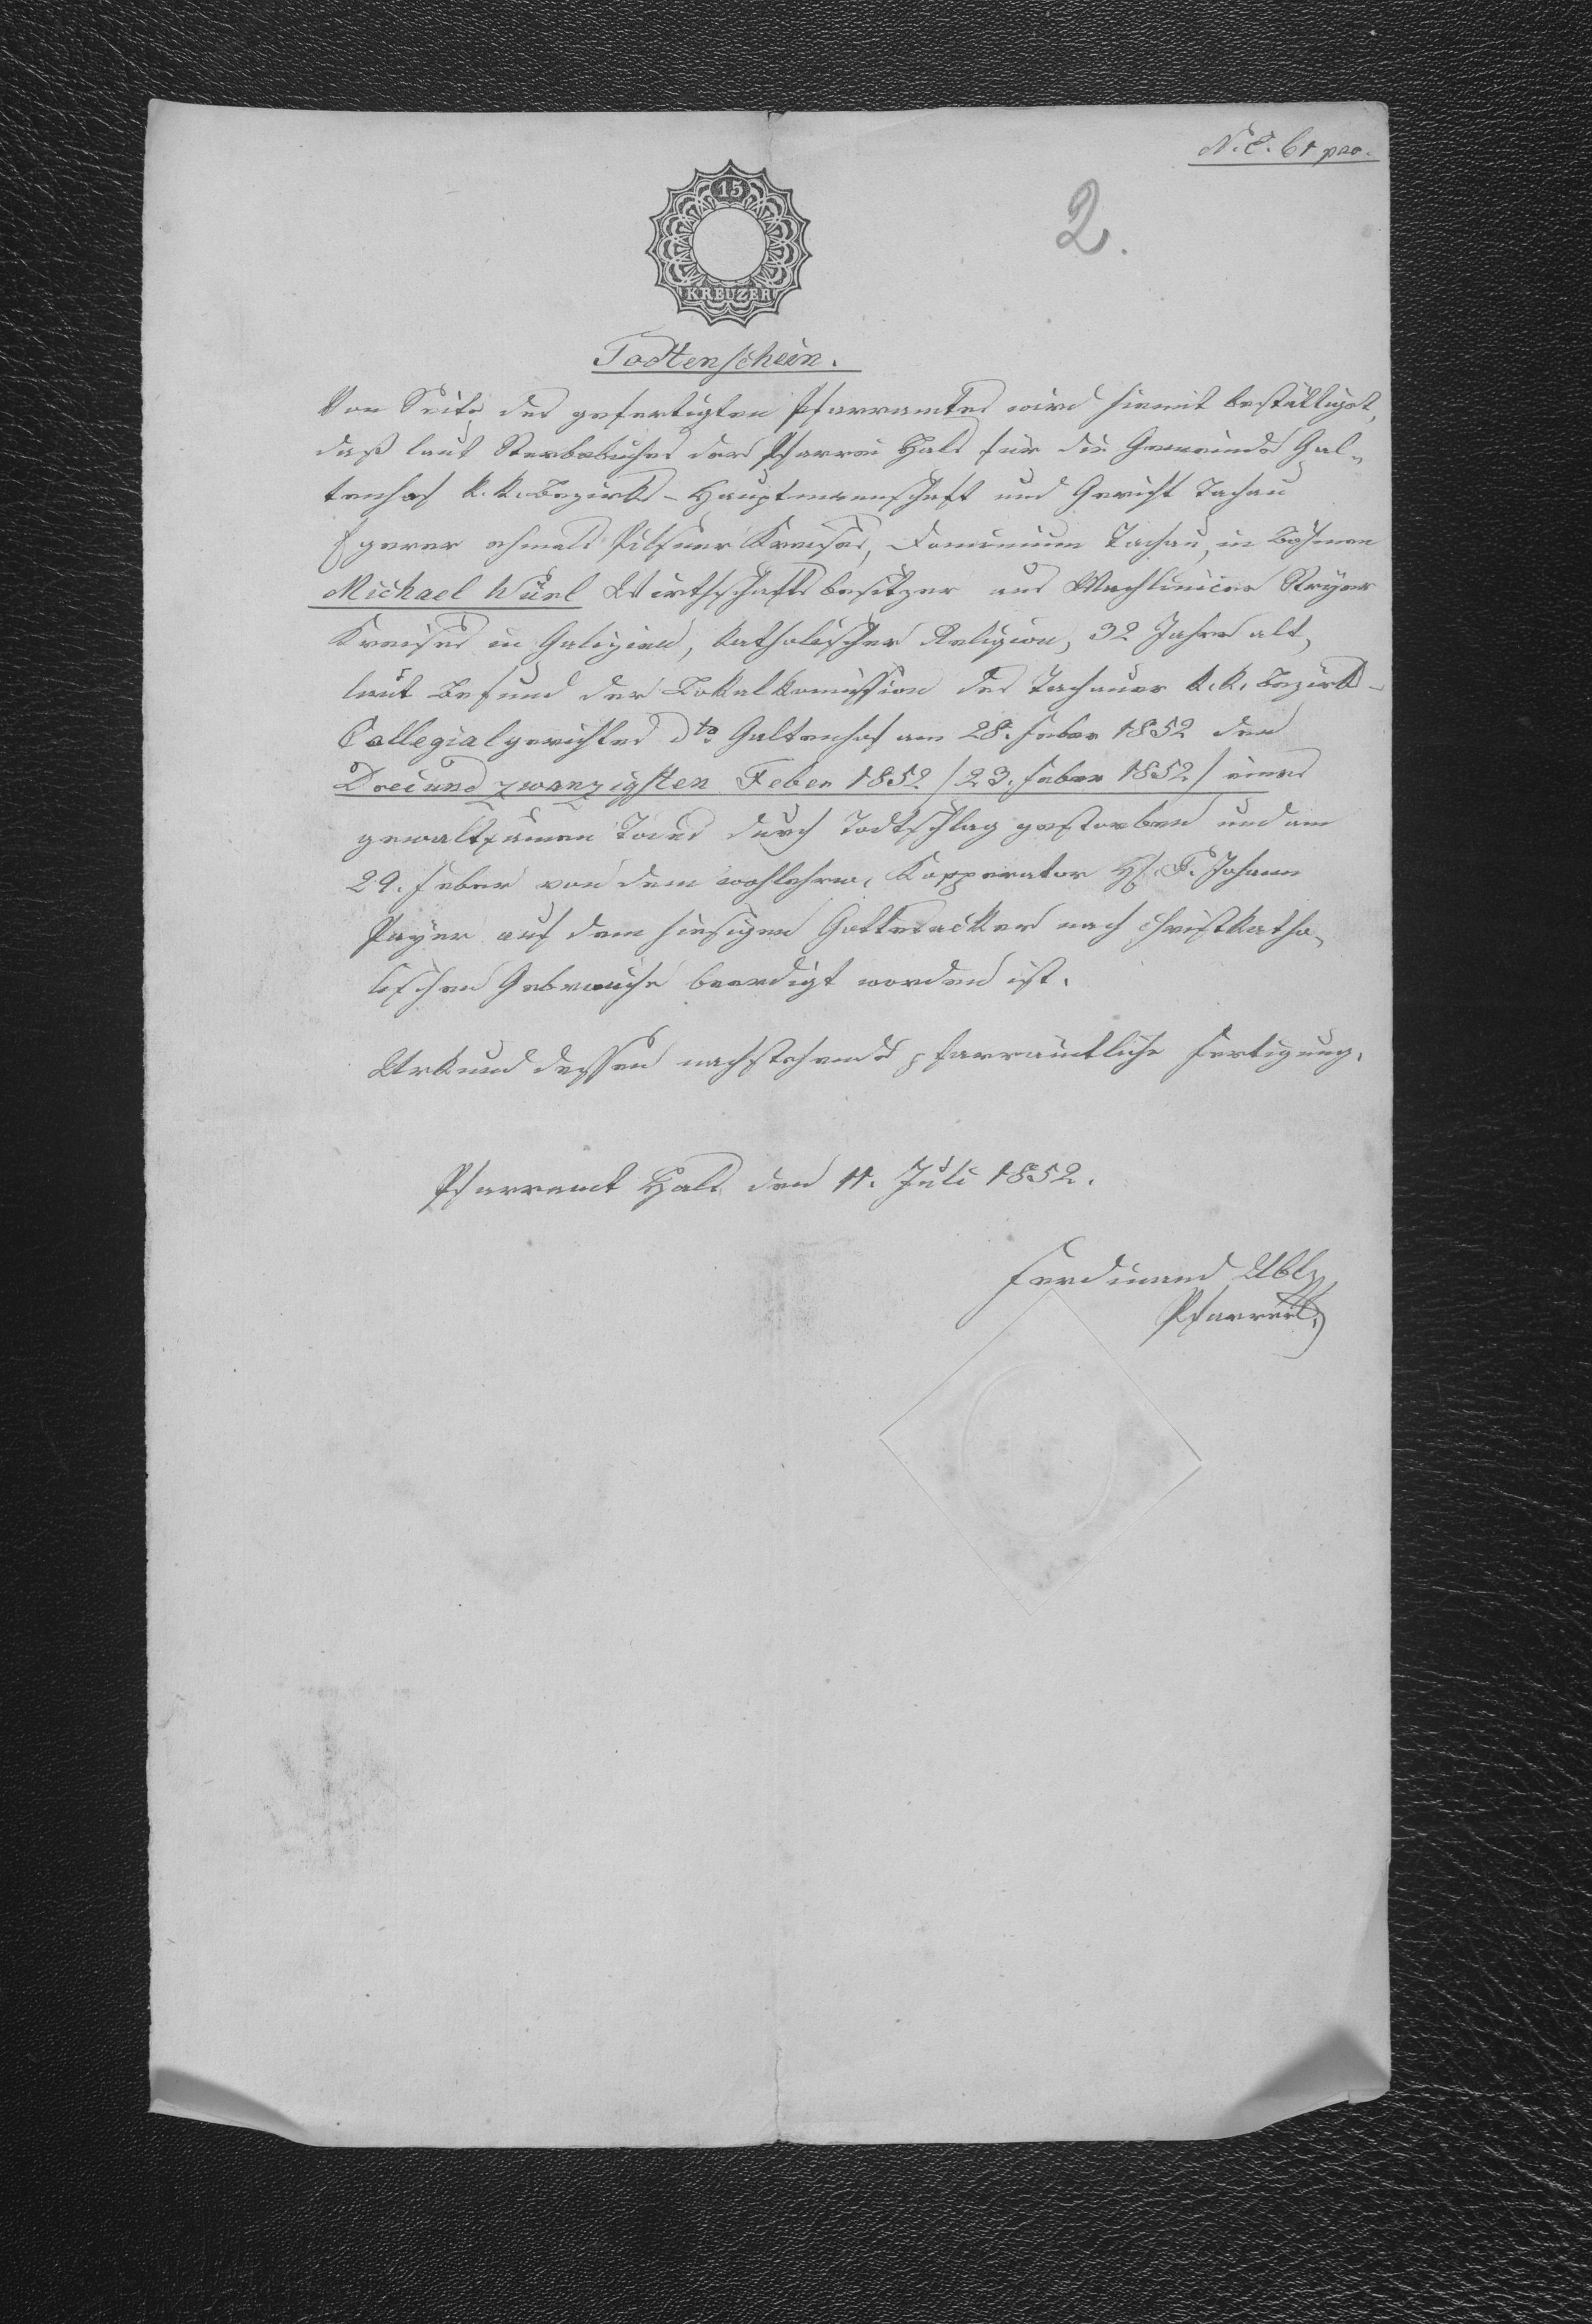 N. E. 61 pro.
15
KREUZER
2.
Todtenschein.
Von Seite des gefertigten Pfarramtes wird hiemit bestättiget,
daß laut Sterbebuches der Pfarrei Hals für die Gemeinde Gal-
tenhof k. k. Bezirks-Hauptmannschaft und Gericht Tachau
Egerer ehmals Pilsner Kreises, Dominium Tachau, in Böhmen
Michael Würl Wirthschaftsbesitzer aus Machlinice Stryer
Kreises in Galizien, katholischer Religion, 32 Jahre alt,
laut Befund der Lokalkomission des Tachauer k. k. Bezirks-
Collegialgerichtes dto Galtenhof am 28. Feber 1852 den
Dreiundzwanzigsten Feber 1852 /23. Feber 1852/ eines
gewaltsamen Todes durch Todtschlag gestorben und am
29. Feber von dem wohlehrw. Kopperator H. P. Johann
Payer auf dem hiesigen Gottesacker nach christkatho-
lischen Gebrauche beerdigt worden ist.
Urkund dessen nachstehende pfarrämtliche Fertigung.
Pfarramt Hals den 11. Juli 1852.
Ferdinand
Pfarrer